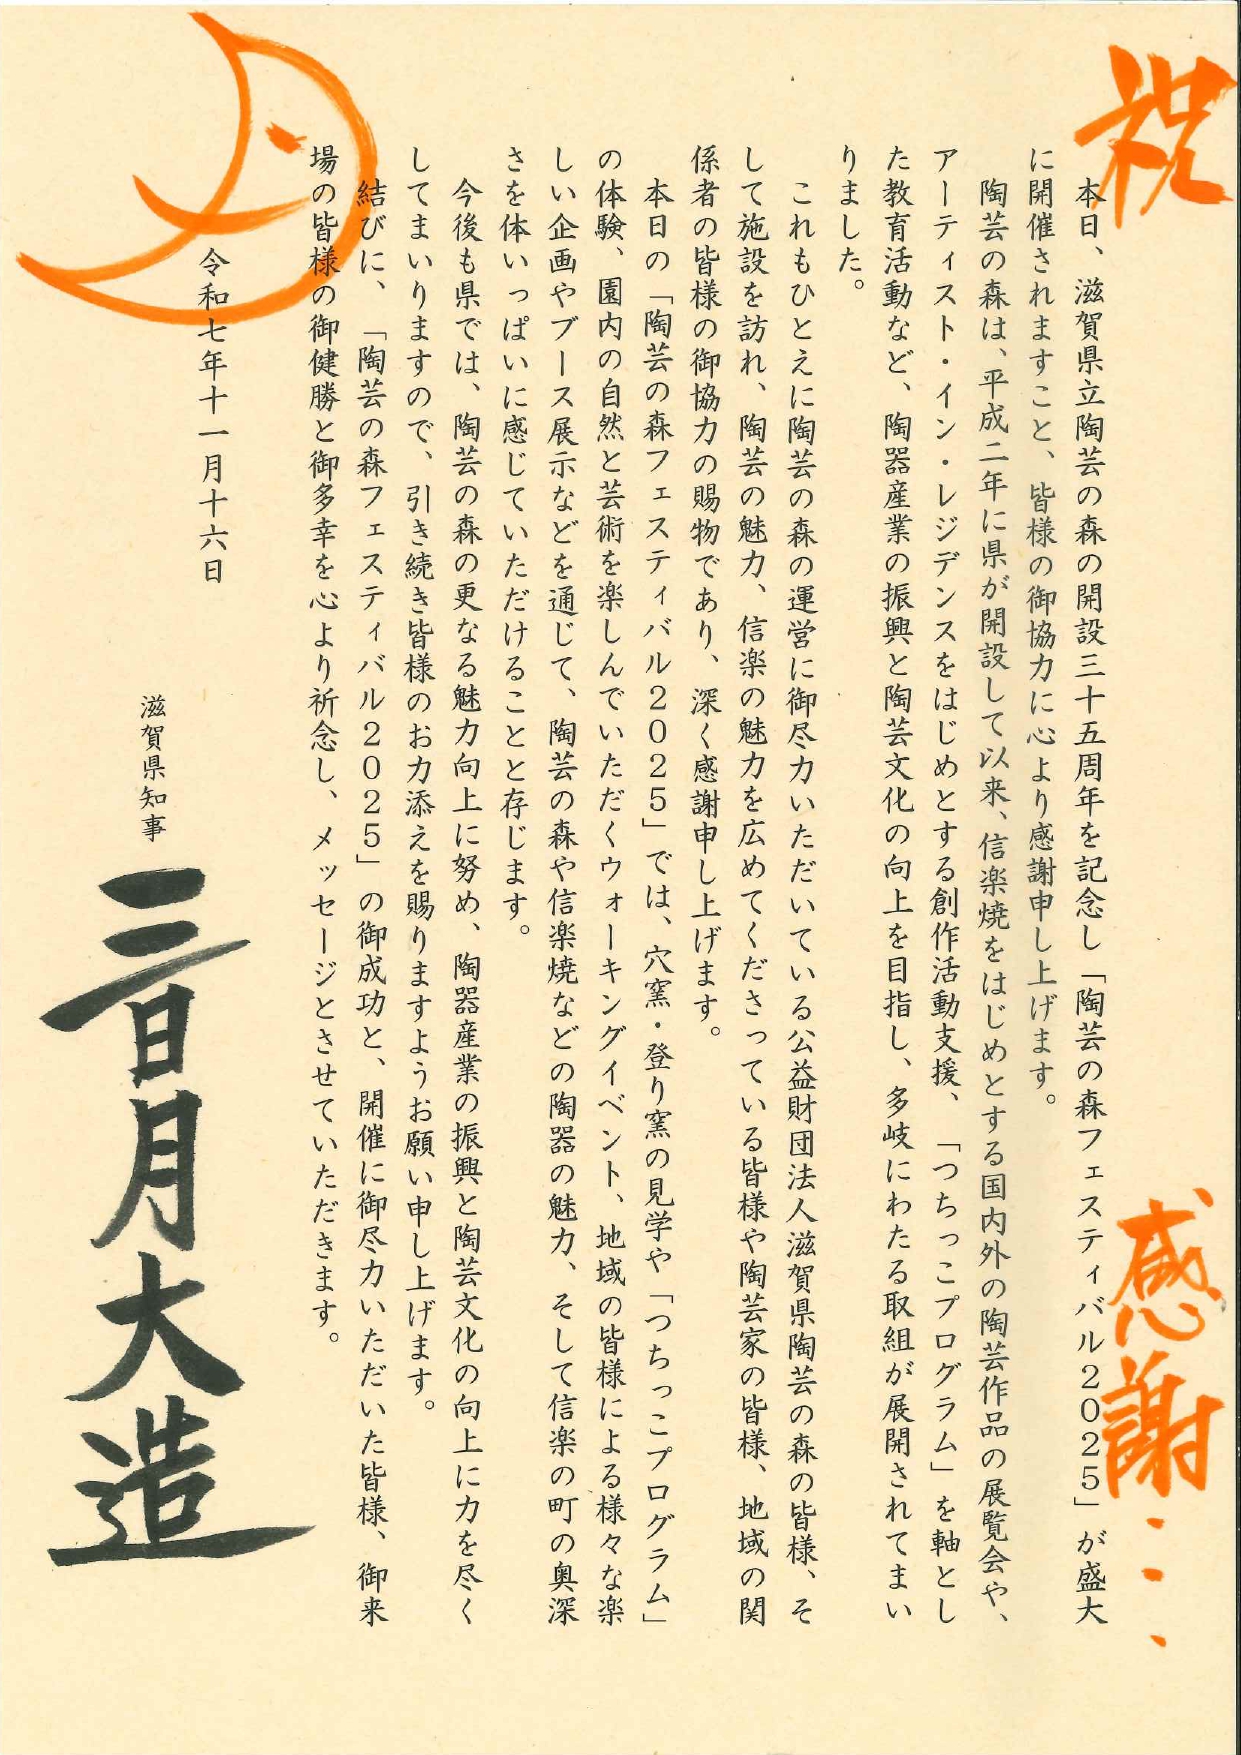 祝
感謝・・・
本日、滋賀県立陶芸の森の開設三十五周年を記念し「陶芸の森フェスティバル２０２５」が盛大
に開催されますこと、皆様の御協力に心より感謝申し上げます。
陶芸の森は、平成二年に県が開設して以来、信楽焼をはじめとする国内外の陶芸作品の展覧会や、
アーティスト・イン・レジデンスをはじめとする創作活動支援、「つちっこプログラム」を軸とし
た教育活動など、陶器産業の振興と陶芸文化の向上を目指し、多岐にわたる取組が展開されてまい
りました。
これもひとえに陶芸の森の運営に御尽力いただいている公益財団法人滋賀県陶芸の森の皆様、そ
して施設を訪れ、陶芸の魅力、信楽の魅力を広めてくださっている皆様や陶芸家の皆様、地域の関
係者の皆様の御協力の賜物であり、深く感謝申し上げます。
本日の「陶芸の森フェスティバル２０２５」では、穴窯・登り窯の見学や「つちっこプログラム」
の体験、園内の自然と芸術を楽しんでいただくウォーキングイベント、地域の皆様による様々な楽
しい企画やブース展示などを通じて、陶芸の森や信楽焼などの陶器の魅力、そして信楽の町の奥深
さを体いっぱいに感じていただけることと存じます。
今後も県では、陶芸の森の更なる魅力向上に努め、陶器産業の振興と陶芸文化の向上に力を尽く
してまいりますので、引き続き皆様のお力添えを賜りますようお願い申し上げます。
結びに、「陶芸の森フェスティバル２０２５」の御成功と、開催に御尽力いただいた皆様、御来
場の皆様の御健勝と御多幸を心より祈念し、メッセージとさせていただきます。
令和七年十一月十六日
滋賀県知事
三日月大造